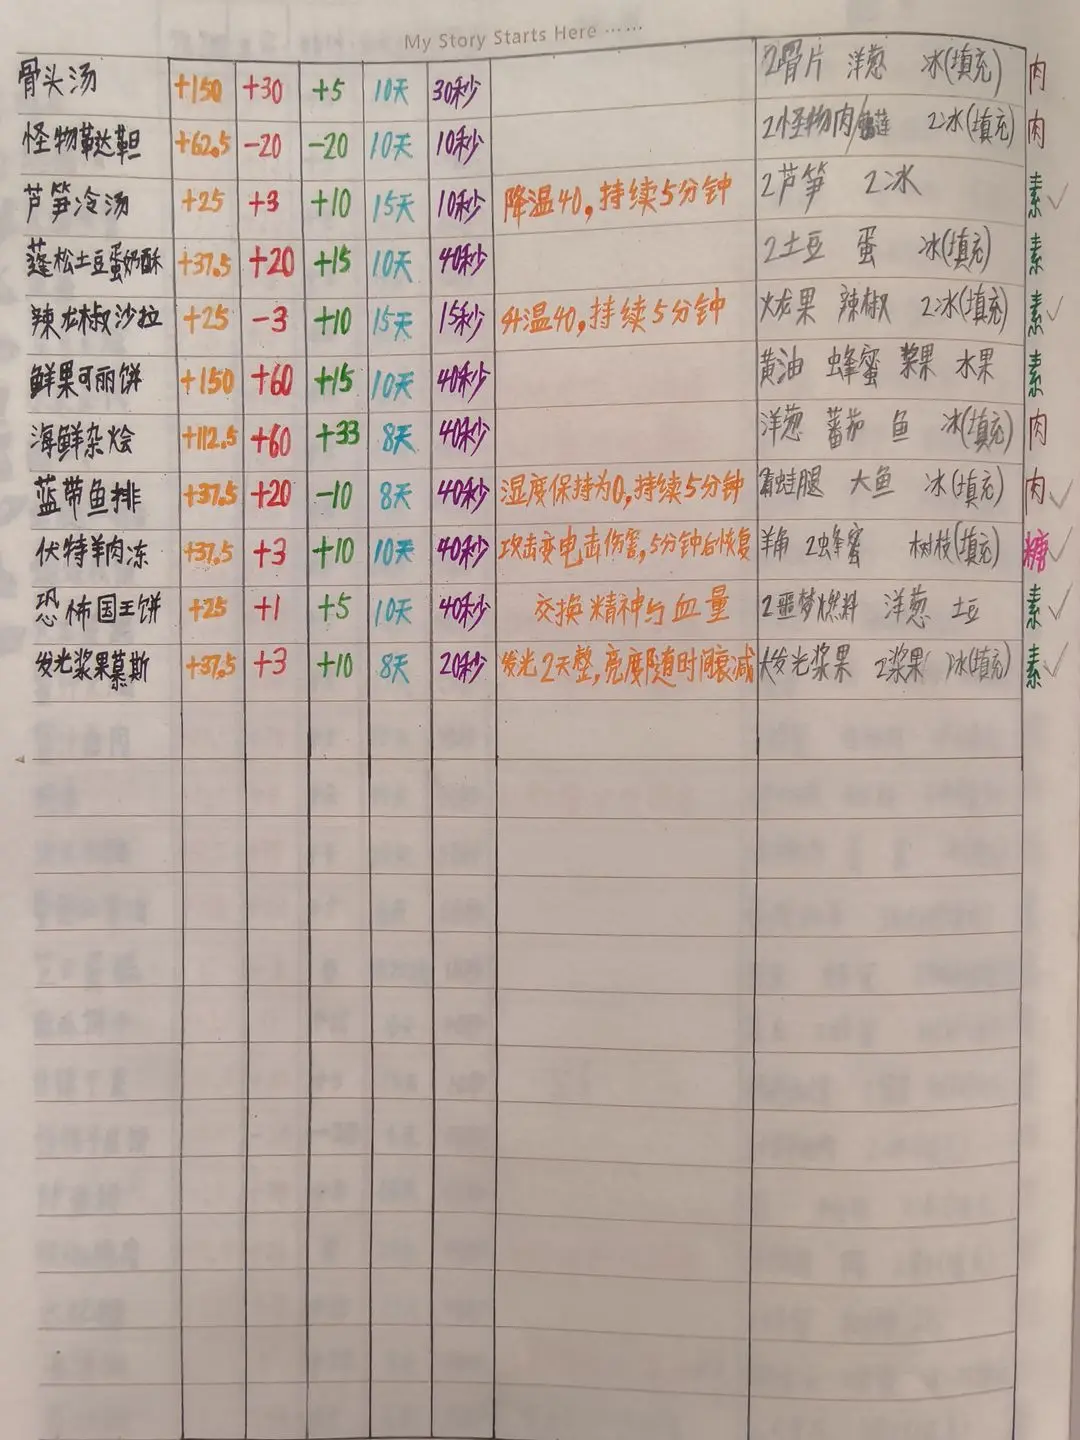 My Story Starts Here ······
骨头汤 +150 +30 +5 10天 30秒 2骨片 洋葱 冰(填充) 肉
怪物鞑靼 +62.5 -20 -20 10天 10秒 2怪物肉 2冰(填充) 肉
芦笋冷汤 +25 +3 +10 15天 10秒 降温40,持续5分钟 2芦笋 2冰 素✓
蓬松土豆蛋奶酥 +37.5 +20 +15 10天 40秒 2土豆 蛋 冰(填充) 素
辣龙椒沙拉 +25 -3 +10 15天 15秒 升温40,持续5分钟 火龙果 辣椒 2冰(填充) 素✓
鲜果可丽饼 +150 +60 +15 10天 40秒 黄油 蜂蜜 浆果 水果 素
海鲜杂烩 +112.5 +60 +33 8天 40秒 洋葱 蕃茄 鱼 冰(填充) 肉
蓝带鱼排 +37.5 +20 -10 8天 40秒 湿度保持为0,持续5分钟 青蛙腿 大鱼 冰(填充) 肉✓
伏特羊肉冻 +37.5 +3 +10 10天 40秒 攻击变电击伤害,5分钟后恢复 羊角 2蜂蜜 树枝(填充) 糖✓
恐怖国王饼 +25 +1 +5 10天 40秒 交换精神与血量 2噩梦燃料 洋葱 土豆 素✓
发光浆果慕斯 +37.5 +3 +10 8天 20秒 发光2天整,亮度随时间衰减 大发光浆果 2浆果 冰(填充) 素✓